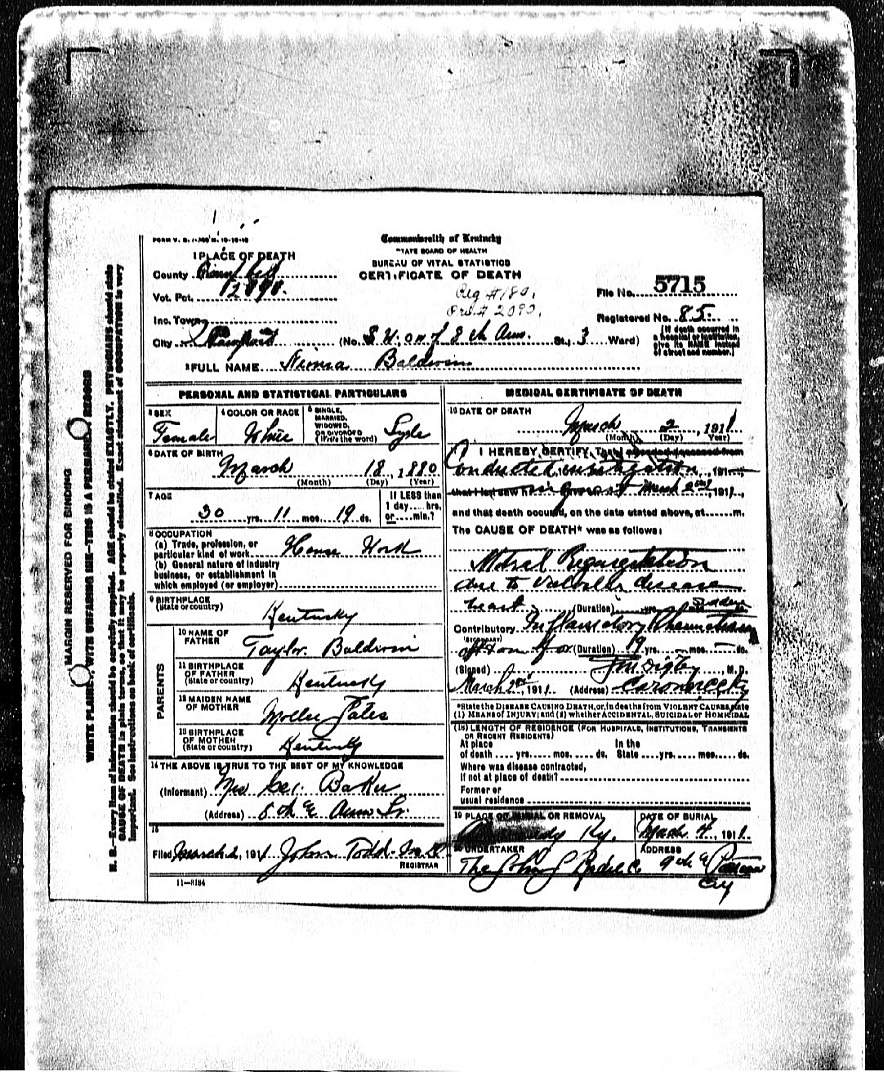 Commonwealth of Kentucky
STATE BOARD OF HEALTH
BUREAU OF VITAL STATISTICS
CERTIFICATE OF DEATH
1 PLACE OF DEATH
County
Vot. Pct.
Inc. Town
City (No. S.W. on of 8th Ann. St., 3 Ward)
Reg # 180.
File No. 5715
Registered No. 85.
[If death occurred in a hospital or institution, give its NAME instead of street and number.]
2 FULL NAME Baldwin
PERSONAL AND STATISTICAL PARTICULARS
3 SEX Female
4 COLOR OR RACE White
5 SINGLE, MARRIED, WIDOWED, OR DIVORCED (Write the word)
6 DATE OF BIRTH March 18, 1880
(Month) (Day) (Year)
7 AGE 30 yrs. 11 mos. 19 ds.
If LESS than 1 day....hrs. or....min.?
8 OCCUPATION
(a) Trade, profession, or particular kind of work House Work
(b) General nature of industry business, or establishment in which employed (or employer)
9 BIRTHPLACE (State or country) Kentucky
PARENTS
10 NAME OF FATHER Taylor Baldwin
11 BIRTHPLACE OF FATHER (State or country) Kentucky
12 MAIDEN NAME OF MOTHER
13 BIRTHPLACE OF MOTHER (State or country) Kentucky
14 THE ABOVE IS TRUE TO THE BEST OF MY KNOWLEDGE
(Informant) Mrs Geo. Baker
(Address) 8th & Ann St.
15
Filed March 2, 1911 John Todd M.D.
REGISTRAR
11—8184
MEDICAL CERTIFICATE OF DEATH
16 DATE OF DEATH March 2 1911
(Month) (Day) (Year)
I HEREBY CERTIFY,
Conducted investigation, 191
March 2nd, 191
and that death occurred, on the date stated above, at....m.
The CAUSE OF DEATH* was as follows:
Mitral Regurgitation
due to Valvular disease
heart (Duration) yrs.
Contributory Inflamatory Rheumatism
(SECONDARY)
(Duration) 19 mos. ds.
(Signed) M.D.
March 2nd, 1911. (Address)
*State the DISEASE CAUSING DEATH, or, in deaths from VIOLENT CAUSES, state
(1) MEANS OF INJURY; and (2) whether ACCIDENTAL, SUICIDAL or HOMICIDAL
(18) LENGTH OF RESIDENCE (FOR HOSPITALS, INSTITUTIONS, TRANSIENTS OR RECENT RESIDENTS)
At place of death....yrs....mos....ds. In the State....yrs....mos....ds.
Where was disease contracted, if not at place of death?
Former or usual residence
19 PLACE OF BURIAL OR REMOVAL Ky.
DATE OF BURIAL March 4, 1911.
20 UNDERTAKER The John
ADDRESS 9th &
MARGIN RESERVED FOR BINDING
WRITE PLAINLY, WITH UNFADING INK—THIS IS A PERMANENT RECORD
N. B.—Every item of information should be carefully supplied. AGE should be stated EXACTLY. PHYSICIANS should state
CAUSE OF DEATH in plain terms, so that it may be properly classified. Exact statement of OCCUPATION is very
important. See instructions on back of certificate.